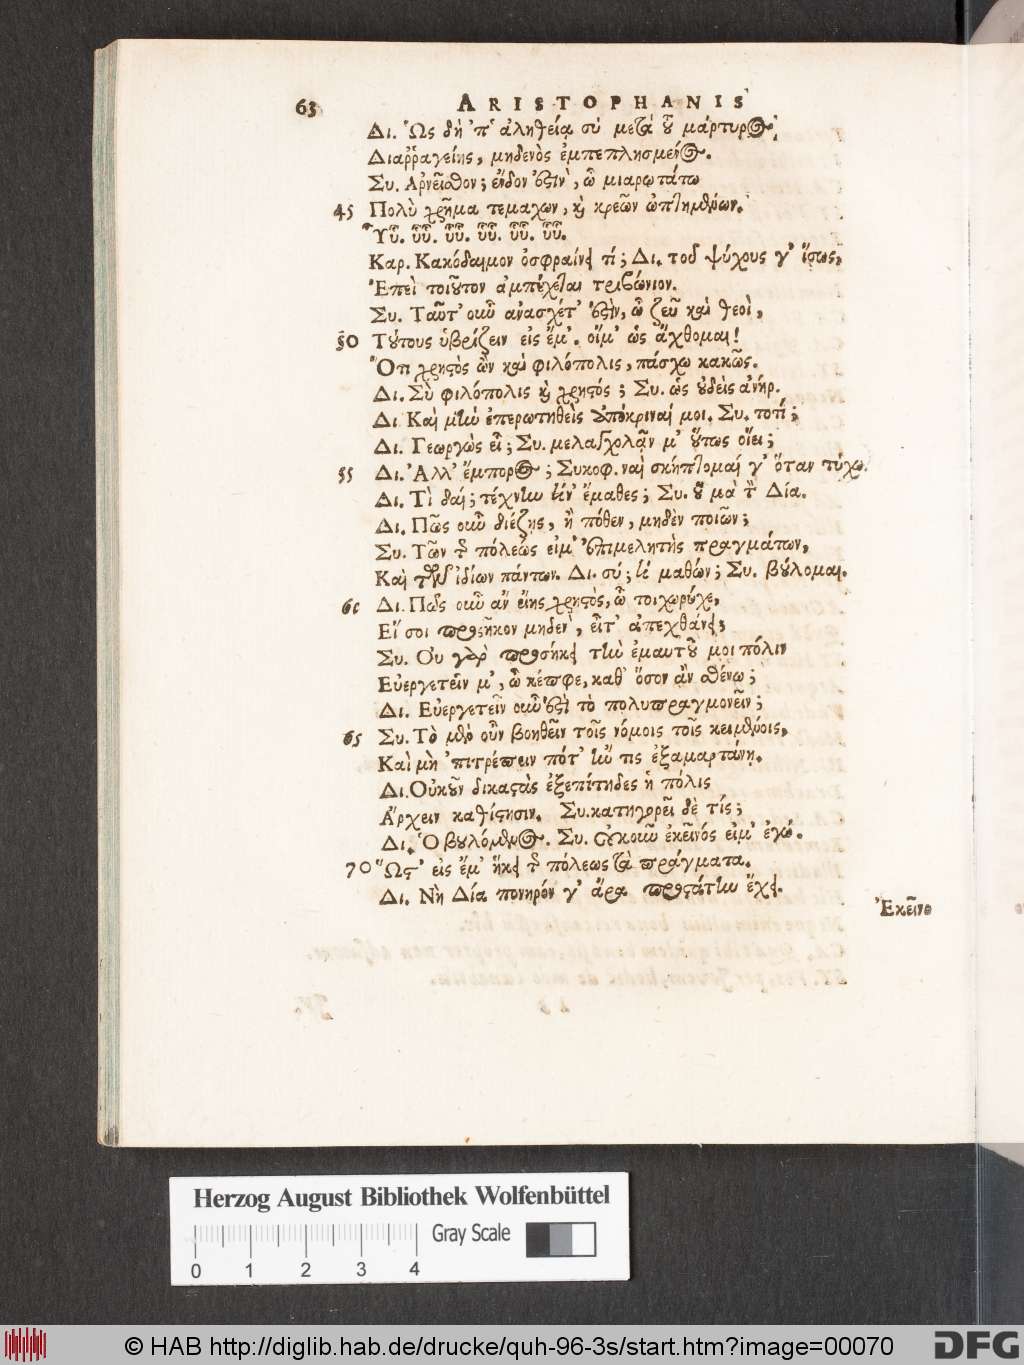 63 ARISTOPHANIS
Δι. Ὡς δὴ 'π' ἀληθείᾳ σὺ μετὰ τοῦ μάρτυρος
Διαῤῥαγείης, μηδενὸς ἐμπεπλησμένος.
Συ. Ἀρνεῖσθον; ἔνδον ἐστὶν, ὦ μιαρωτάτω
45 Πολὺ χρῆμα τεμαχων, καὶ κρεῶν ὠπτημένων.
Ὗὗ. ὗὗ. ὗὗ. ὗὗ. ὗὗ. ὗὗ.
Καρ. Κακόδαιμον ὀσφραίνει τί; Δι. τοῦ ψύχους γ' ἴσως,
Ἐπεὶ τοιοῦτον ἀμπέχεται τριβώνιον.
Συ. Ταῦτ' οὖν ἀνασχέτ' ἐστὶν, ὦ ζεῦ καὶ θεοὶ,
50 Τούτους ὑβρίζειν εἰς ἔμ'. οἴμ' ὡς ἄχθομαι!
Ὅτι χρηστὸς ὢν καὶ φιλόπολις, πάσχω κακῶς.
Δι. Σὺ φιλόπολις καὶ χρηστός; Συ. ὡς οὐδεὶς ἀνήρ.
Δι. Καὶ μὴν ἐπερωτηθεὶς ἀπόκριναί μοι. Συ. το τί;
Δι. Γεωργὸς εἶ; Συ. μελαγχολᾷν μ' οὕτως οἴει;
55 Δι. Ἀλλ' ἔμπορος; Συκοφ. ναὶ σκήπτομαί γ' ὅταν τύχω.
Δι. Τὶ δαί; τέχνην τίν' ἔμαθες; Συ. οὐ μὰ τὸν Δία.
Δι. Πῶς οὖν διέζης, ἢ πόθεν, μηδὲν ποιῶν;
Συ. Τῶν τῆς πόλεώς εἰμ' ἐπιμελητὴς πραγμάτων,
Καὶ τῶν ἰδίων πάντων. Δι. σύ; τί μαθών; Συ. βούλομαι.
60 Δι. Πῶς οὖν ἂν εἴης χρηστὸς, ὦ τοιχωρύχε,
Εἴ σοι προσῆκον μηδὲν, εἶτ' ἀπεχθάνει;
Συ. Οὐ γὰρ προσήκει τὴν ἐμαυτοῦ μοι πόλιν
Εὐεργετεῖν μ', ὦ κέπφε, καθ' ὅσον ἂν σθένω;
Δι. Εὐεργετεῖν οὖν ἐστὶ τὸ πολυπραγμονεῖν;
65 Συ. Τὸ μὲν οὖν βοηθεῖν τοῖς νόμοις τοῖς κειμένοις,
Καὶ μὴ 'πιτρέπειν πότ' ἤν τις ἐξαμαρτάνῃ.
Δι. Οὐκοῦν δικαστὰς ἐξεπίτηδες ἡ πόλις
Ἄρχειν καθίστησιν. Συ. κατηγορεῖ δὲ τίς;
Δι. Ὁ βουλόμενος. Συ. οὐκοῦν ἐκεῖνός εἰμ' ἐγώ.
70 Ὥστ' εἰς ἔμ' ἥκει τῆς πόλεως τὰ πράγματα.
Δι. Νὴ Δία πονηρόν γ' ἄρα προστάτην ἔχει.
Ἐκεῖνο
Herzog August Bibliothek Wolfenbüttel
Gray Scale
0 1 2 3 4
© HAB http://diglib.hab.de/drucke/quh-96-3s/start.htm?image=00070
DFG